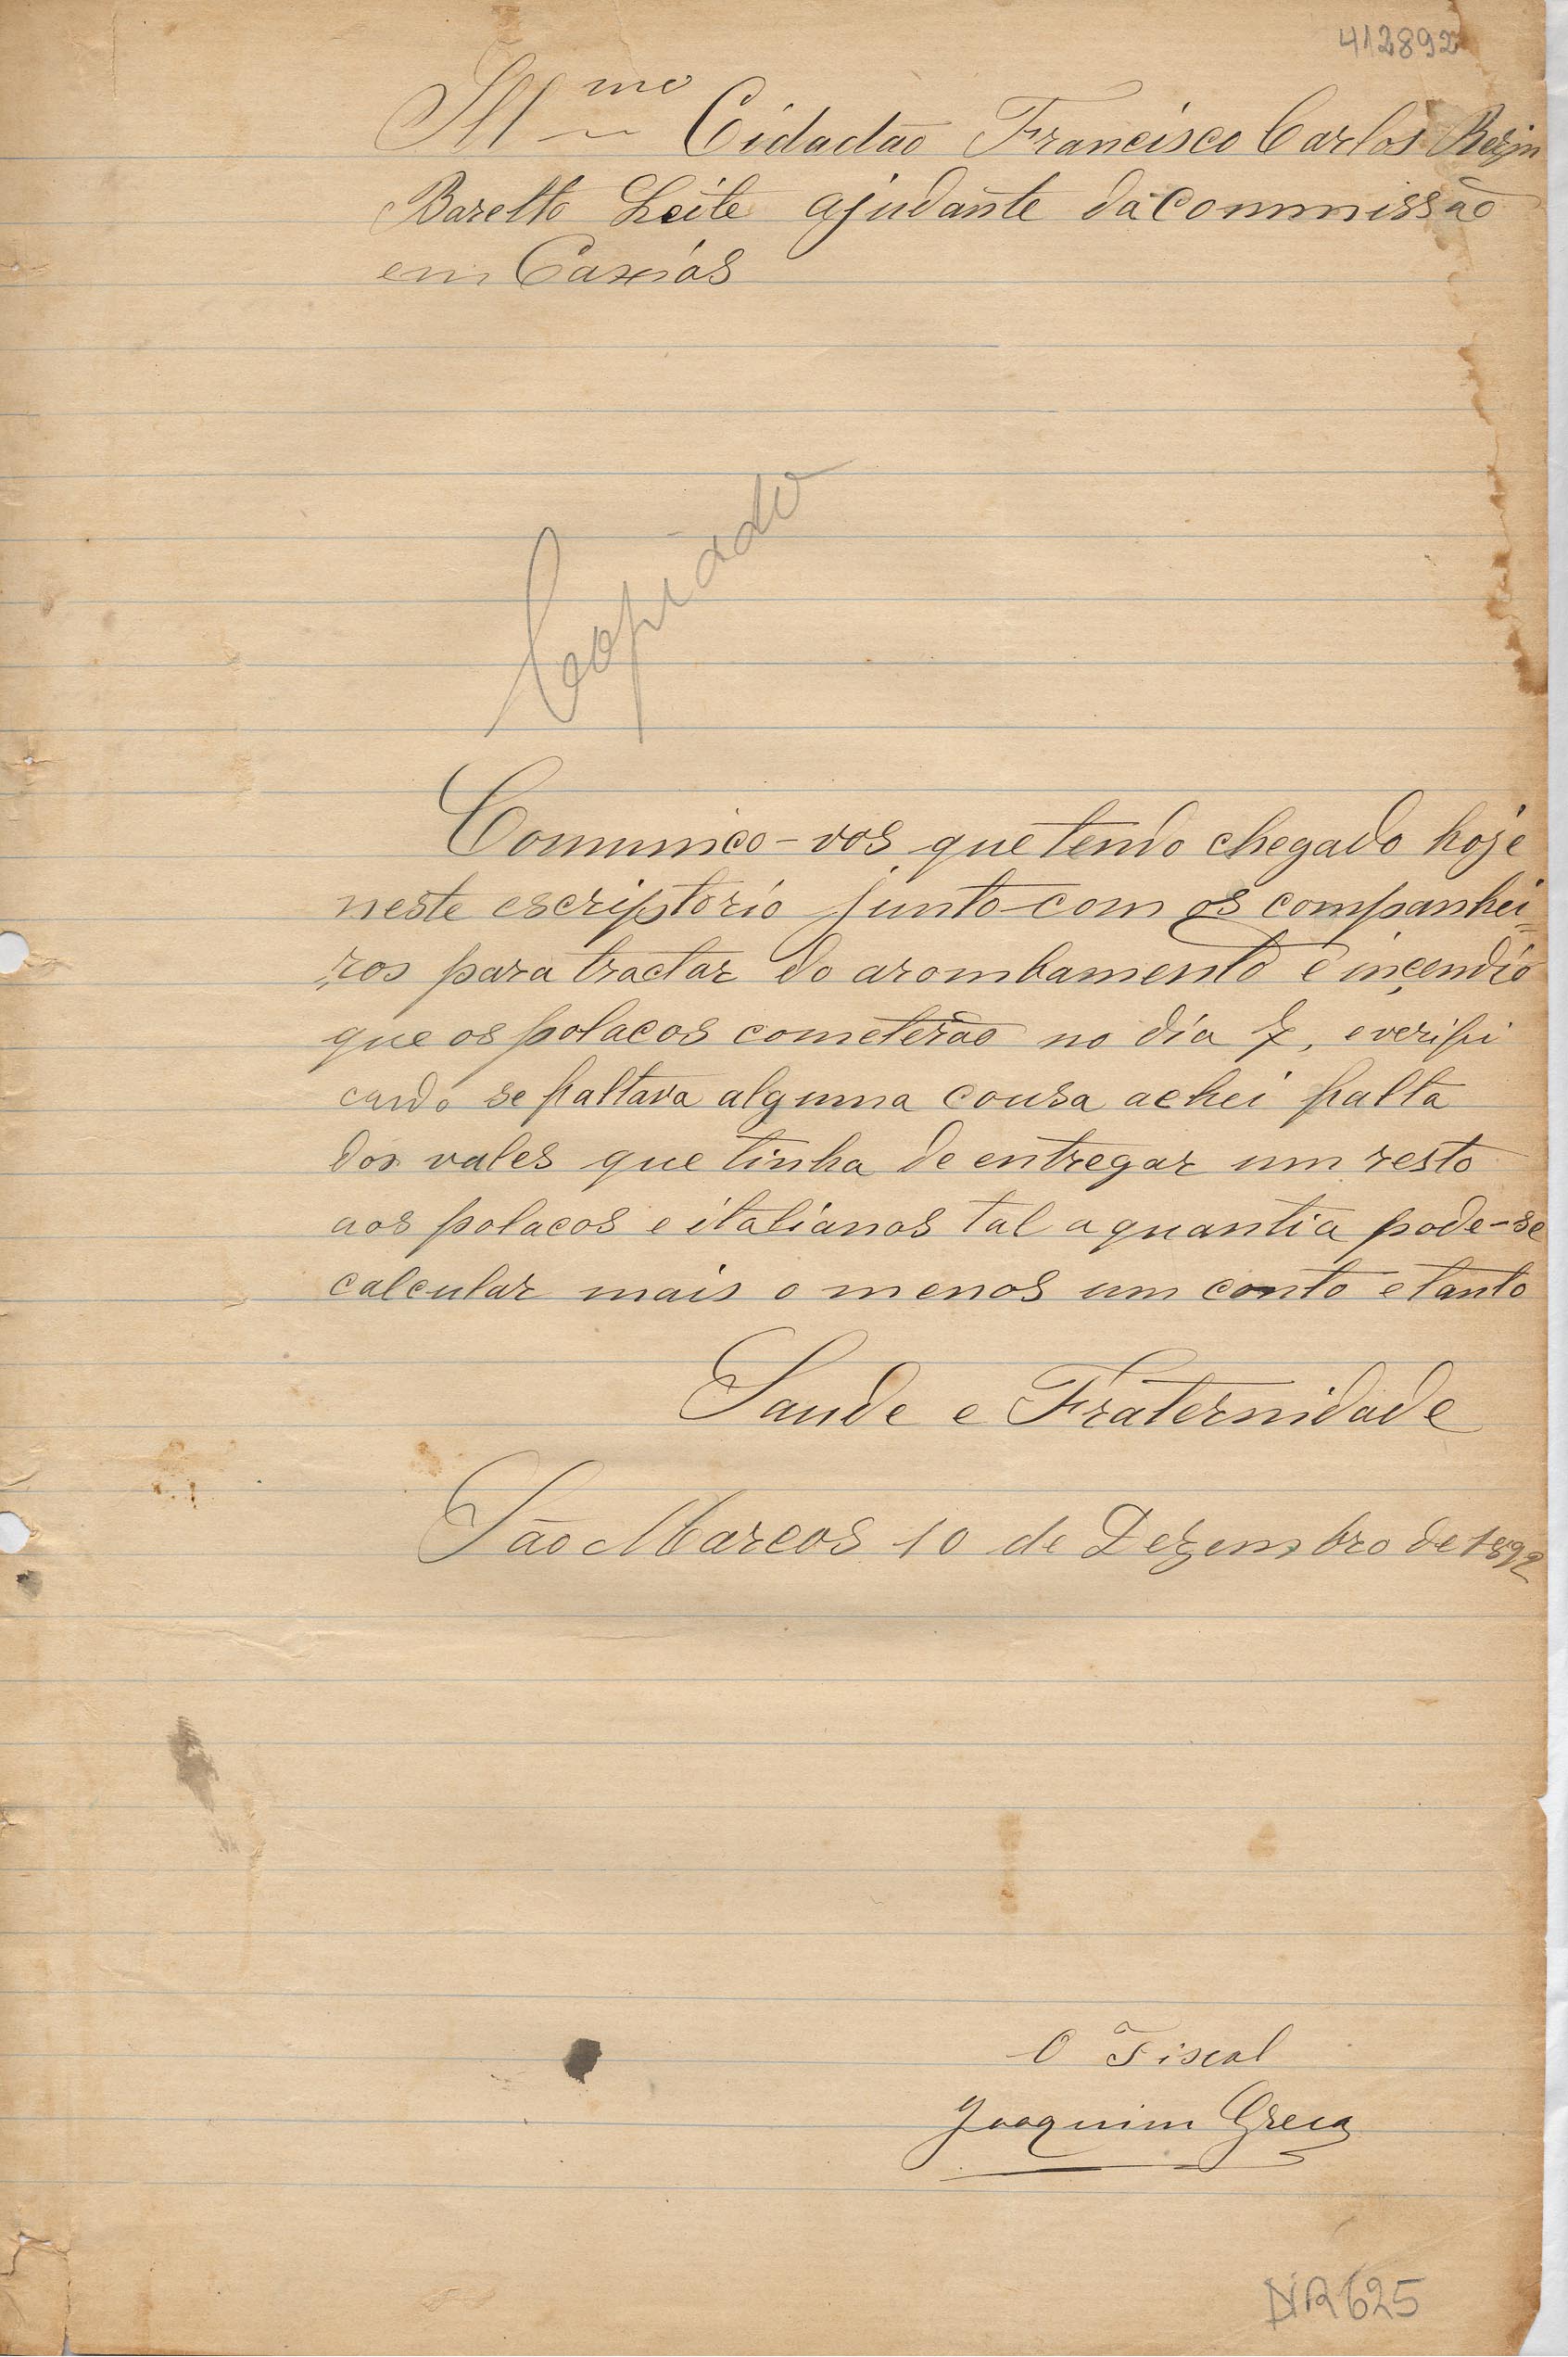 412892
Illmo Cidadão Francisco Carlos
Baretto Leite ajudante da commissão
em Caxias
Copiado
Comunico-vos que tendo chegado hoje
neste escriptorio junto com os companhei=
ros para tractar do arombamento e incendio
que os polacos cometerão no dia 7, e verifi
cando se faltava alguma cousa achei falta
dos vales que tinha de entregar um resto
aos polacos e italianos tal a quantia pode-se
calcular mais o menos um conto e tanto
Saude e Fraternidade
São Marcos 10 de Dezembro de 1892
O Fiscal
Joaquim
625